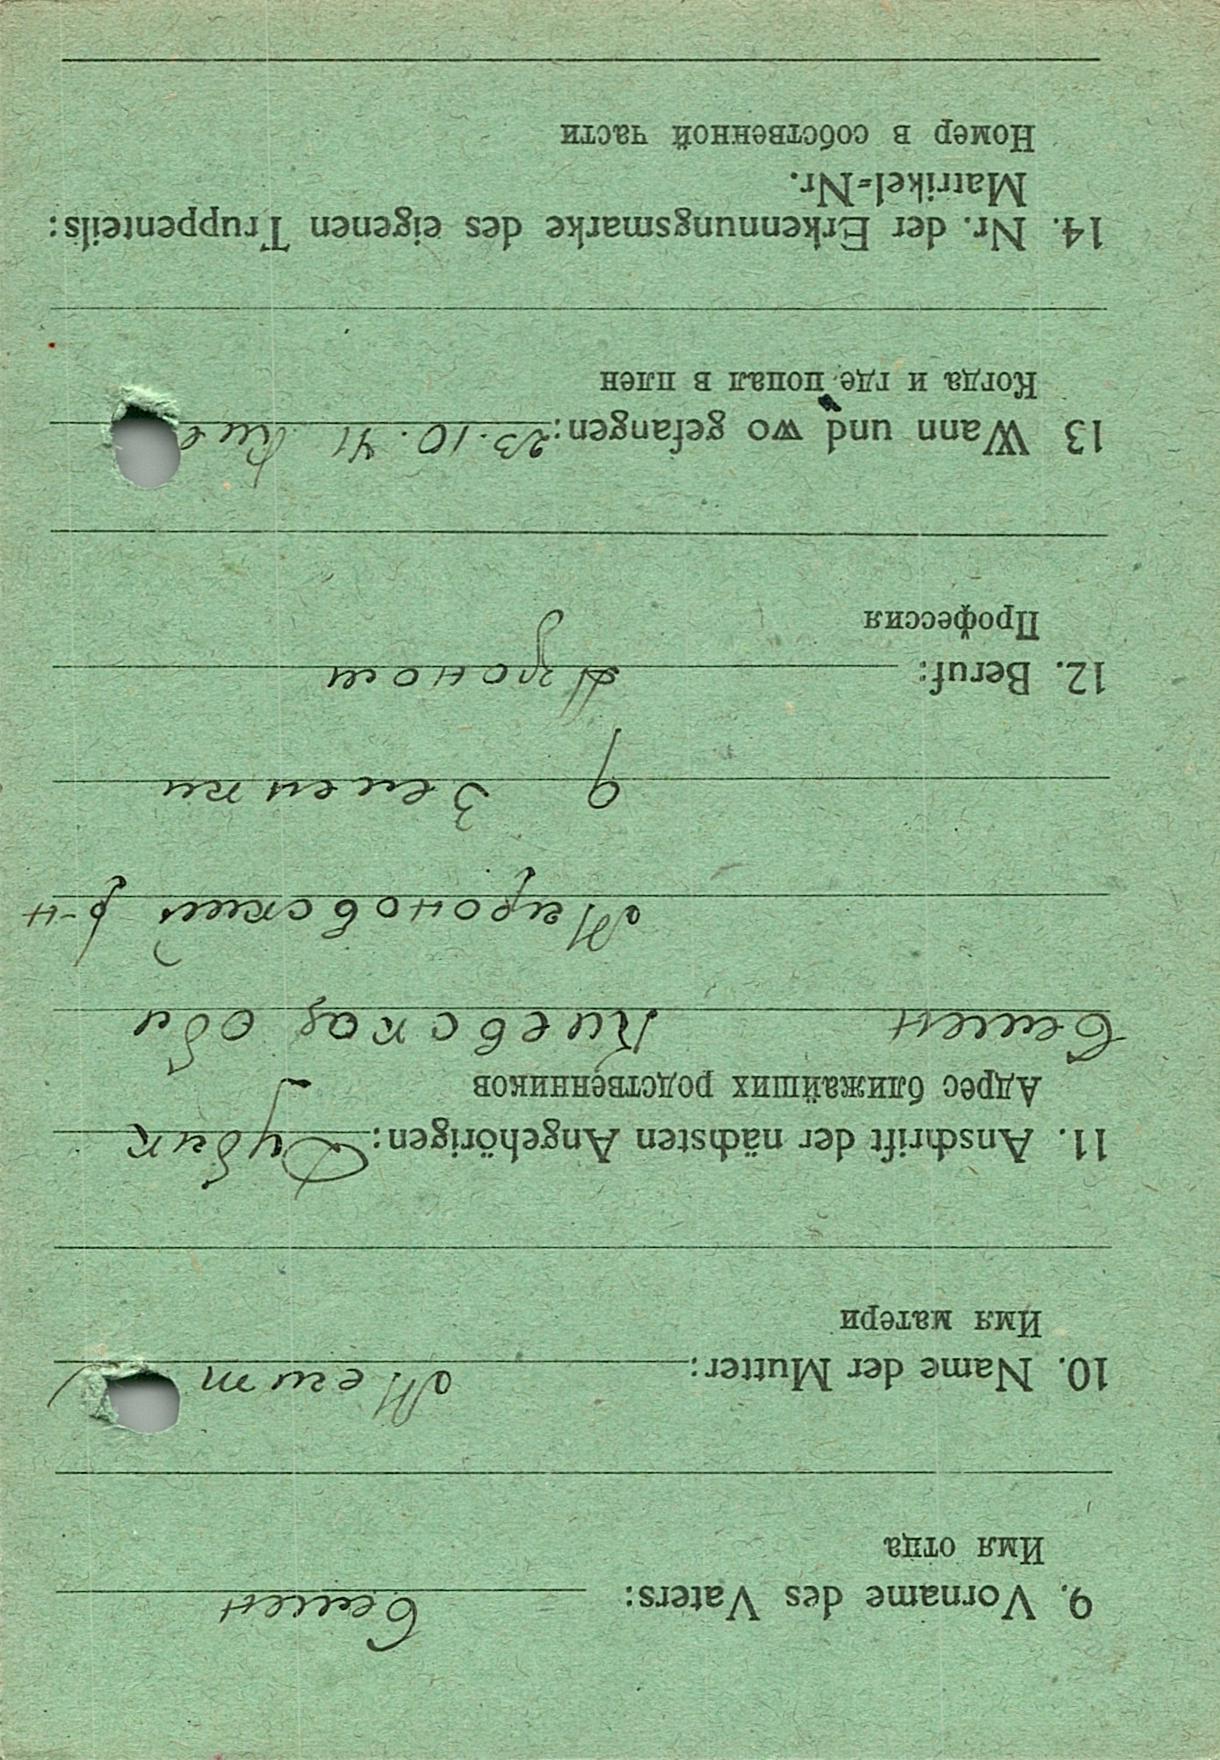 9. Vorname des Vaters: Семен
Имя отца
10. Name der Mutter:
Имя матери
11. Anschrift der nächsten Angehörigen: Дубик
Адрес ближайших родственников
Семен Киевская обл
Мироновский р-н
д Зеленки
12. Beruf: Агроном
Профессия
13 Wann und wo gefangen: 23.10.41 Кие
Когда и где попал в плен
14. Nr. der Erkennungsmarke des eigenen Truppenteils:
Matrikel-Nr.
Номер в собственной части